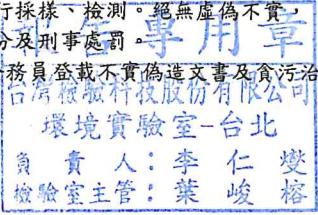 行採樣、檢測。絕無虛偽不實,
分及刑事處罰。
務員登載不實偽造文書及貪污治
專用章
台灣檢驗科技股份有限公司
環境實驗室-台北
負責人:李仁燮
檢驗室主管:葉峻榕